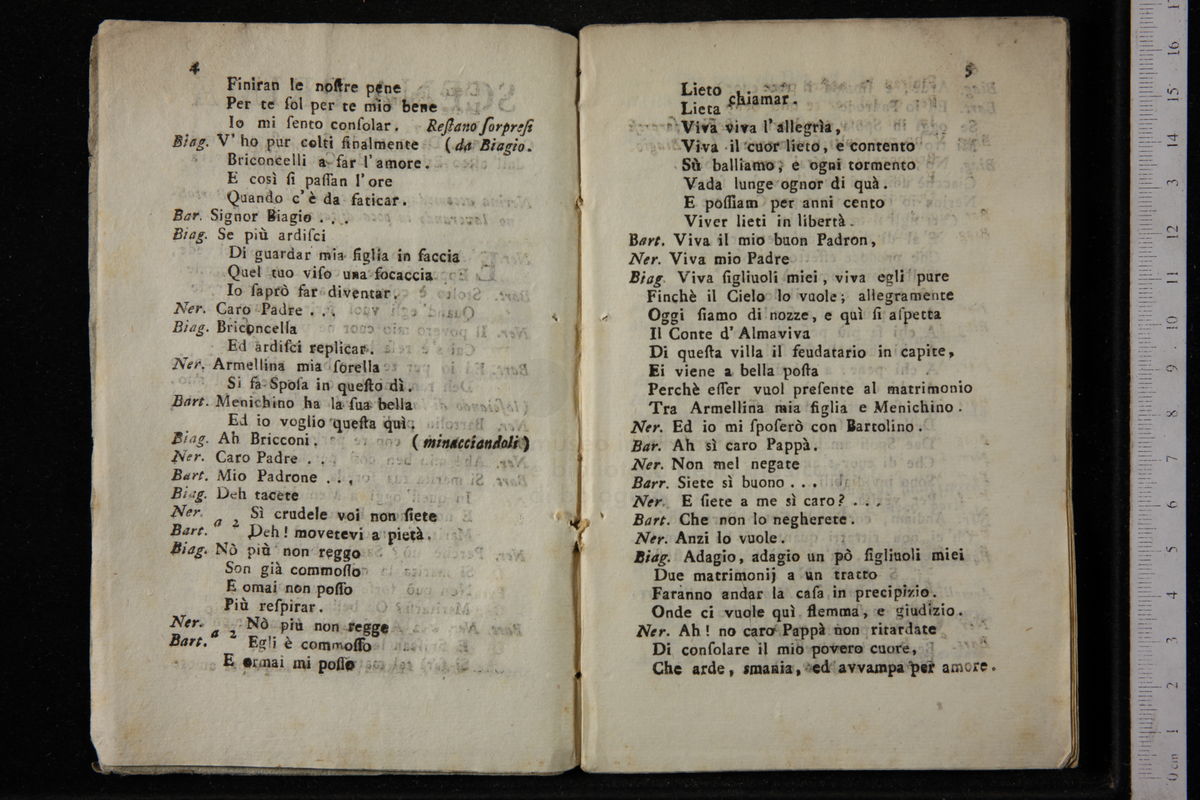 4
Finiran le noſtre pene
Per te ſol per te mio bene
Io mi ſento conſolar. Reſtano ſorpreſi
Biag. V' ho pur colti finalmente (da Biagio.
Briconcelli a far l'amore.
E così ſi paſſan l'ore
Quando c'è da faticar.
Bar. Signor Biagio . . .
Biag. Se più ardiſci
Di guardar mia figlia in faccia
Quel tuo viſo una focaccia
Io ſaprò far diventar.
Ner. Caro Padre . . .
Biag. Briconcella
Ed ardiſci replicar.
Ner. Armellina mia ſorella
Si fà Spoſa in queſto dì.
Bart. Menichino ha la ſua bella
Ed io voglio queſta quì.
Biag. Ah Bricconi. (minacciandoli)
Ner. Caro Padre . .
Bart. Mio Padrone . . .
Biag. Deh tacete
Ner. a 2 Sì crudele voi non ſiete
Bart. Deh! movetevi a pietà.
Biag. Nò più non reggo
Son già commoſſo
E omai non poſſo
Più reſpirar.
Ner. a 2 Nò più non regge
Bart. Egli è commoſſo
E ormai mi poſſo
5
Lieto
Lieta chiamar.
Viva viva l'allegrìa,
Viva il cuor lieto, e contento
Sù balliamo, e ogni tormento
Vada lunge ognor di quà.
E poſſiam per anni cento
Viver lieti in libertà.
Bart. Viva il mio buon Padron,
Ner. Viva mio Padre
Biag. Viva figliuoli miei, viva egli pure
Finchè il Cielo lo vuole; allegramente
Oggi ſiamo di nozze, e quì ſi aſpetta
Il Conte d' Almaviva
Di queſta villa il feudatario in capite,
Ei viene a bella poſta
Perchè eſſer vuol preſente al matrimonio
Tra Armellina mia figlia e Menichino.
Ner. Ed io mi ſpoſerò con Bartolino.
Bar. Ah sì caro Pappà.
Ner. Non mel negate
Barr. Siete sì buono . . .
Ner. E ſiete a me sì caro? . . .
Bart. Che non lo negherete.
Ner. Anzi lo vuole.
Biag. Adagio, adagio un pò figliuoli miei
Due matrimonij a un tratto
Faranno andar la caſa in precipizio.
Onde ci vuole quì flemma, e giudizio.
Ner. Ah! no caro Pappà non ritardate
Di conſolare il mio povero cuore,
Che arde, smania, ed avvampa per amore.
0 cm 1 2 3 4 5 6 7 8 9 10 11 12 13 14 15 16 17